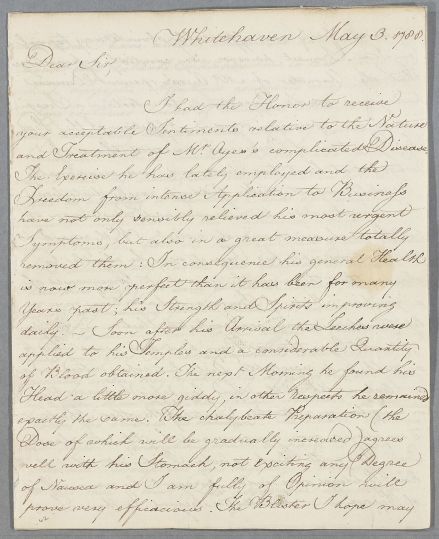 Whitehaven May 3. 1788.
Dear Sir,
I had the Honor to receive
your acceptable Sentiments relative to the Nature
and Treatment of Mr. Ayer's complicated Disease
The Exercise he has lately employed and the
Freedom from intense Application to Business
have not only sensibly relieved his most urgent
Symptoms, but also in a great measure totally
removed them: In consequence his general Health
is now more perfect than it has been for many
Years past; his Strength and Spirits improving
daily. – Soon after his Arrival the Leeches were
applied to his Temples and a considerable Quantity
of Blood obtained. The next Morning he found his
Head a little more giddy, in other Respects he remained
exactly the same. The chalybeate Preparation (the
Dose of which will be gradually increased) agrees
well with his Stomach, not exciting any Degree
of Nausea and I am fully of Opinion will
prove very efficacious. The Blister I hope may